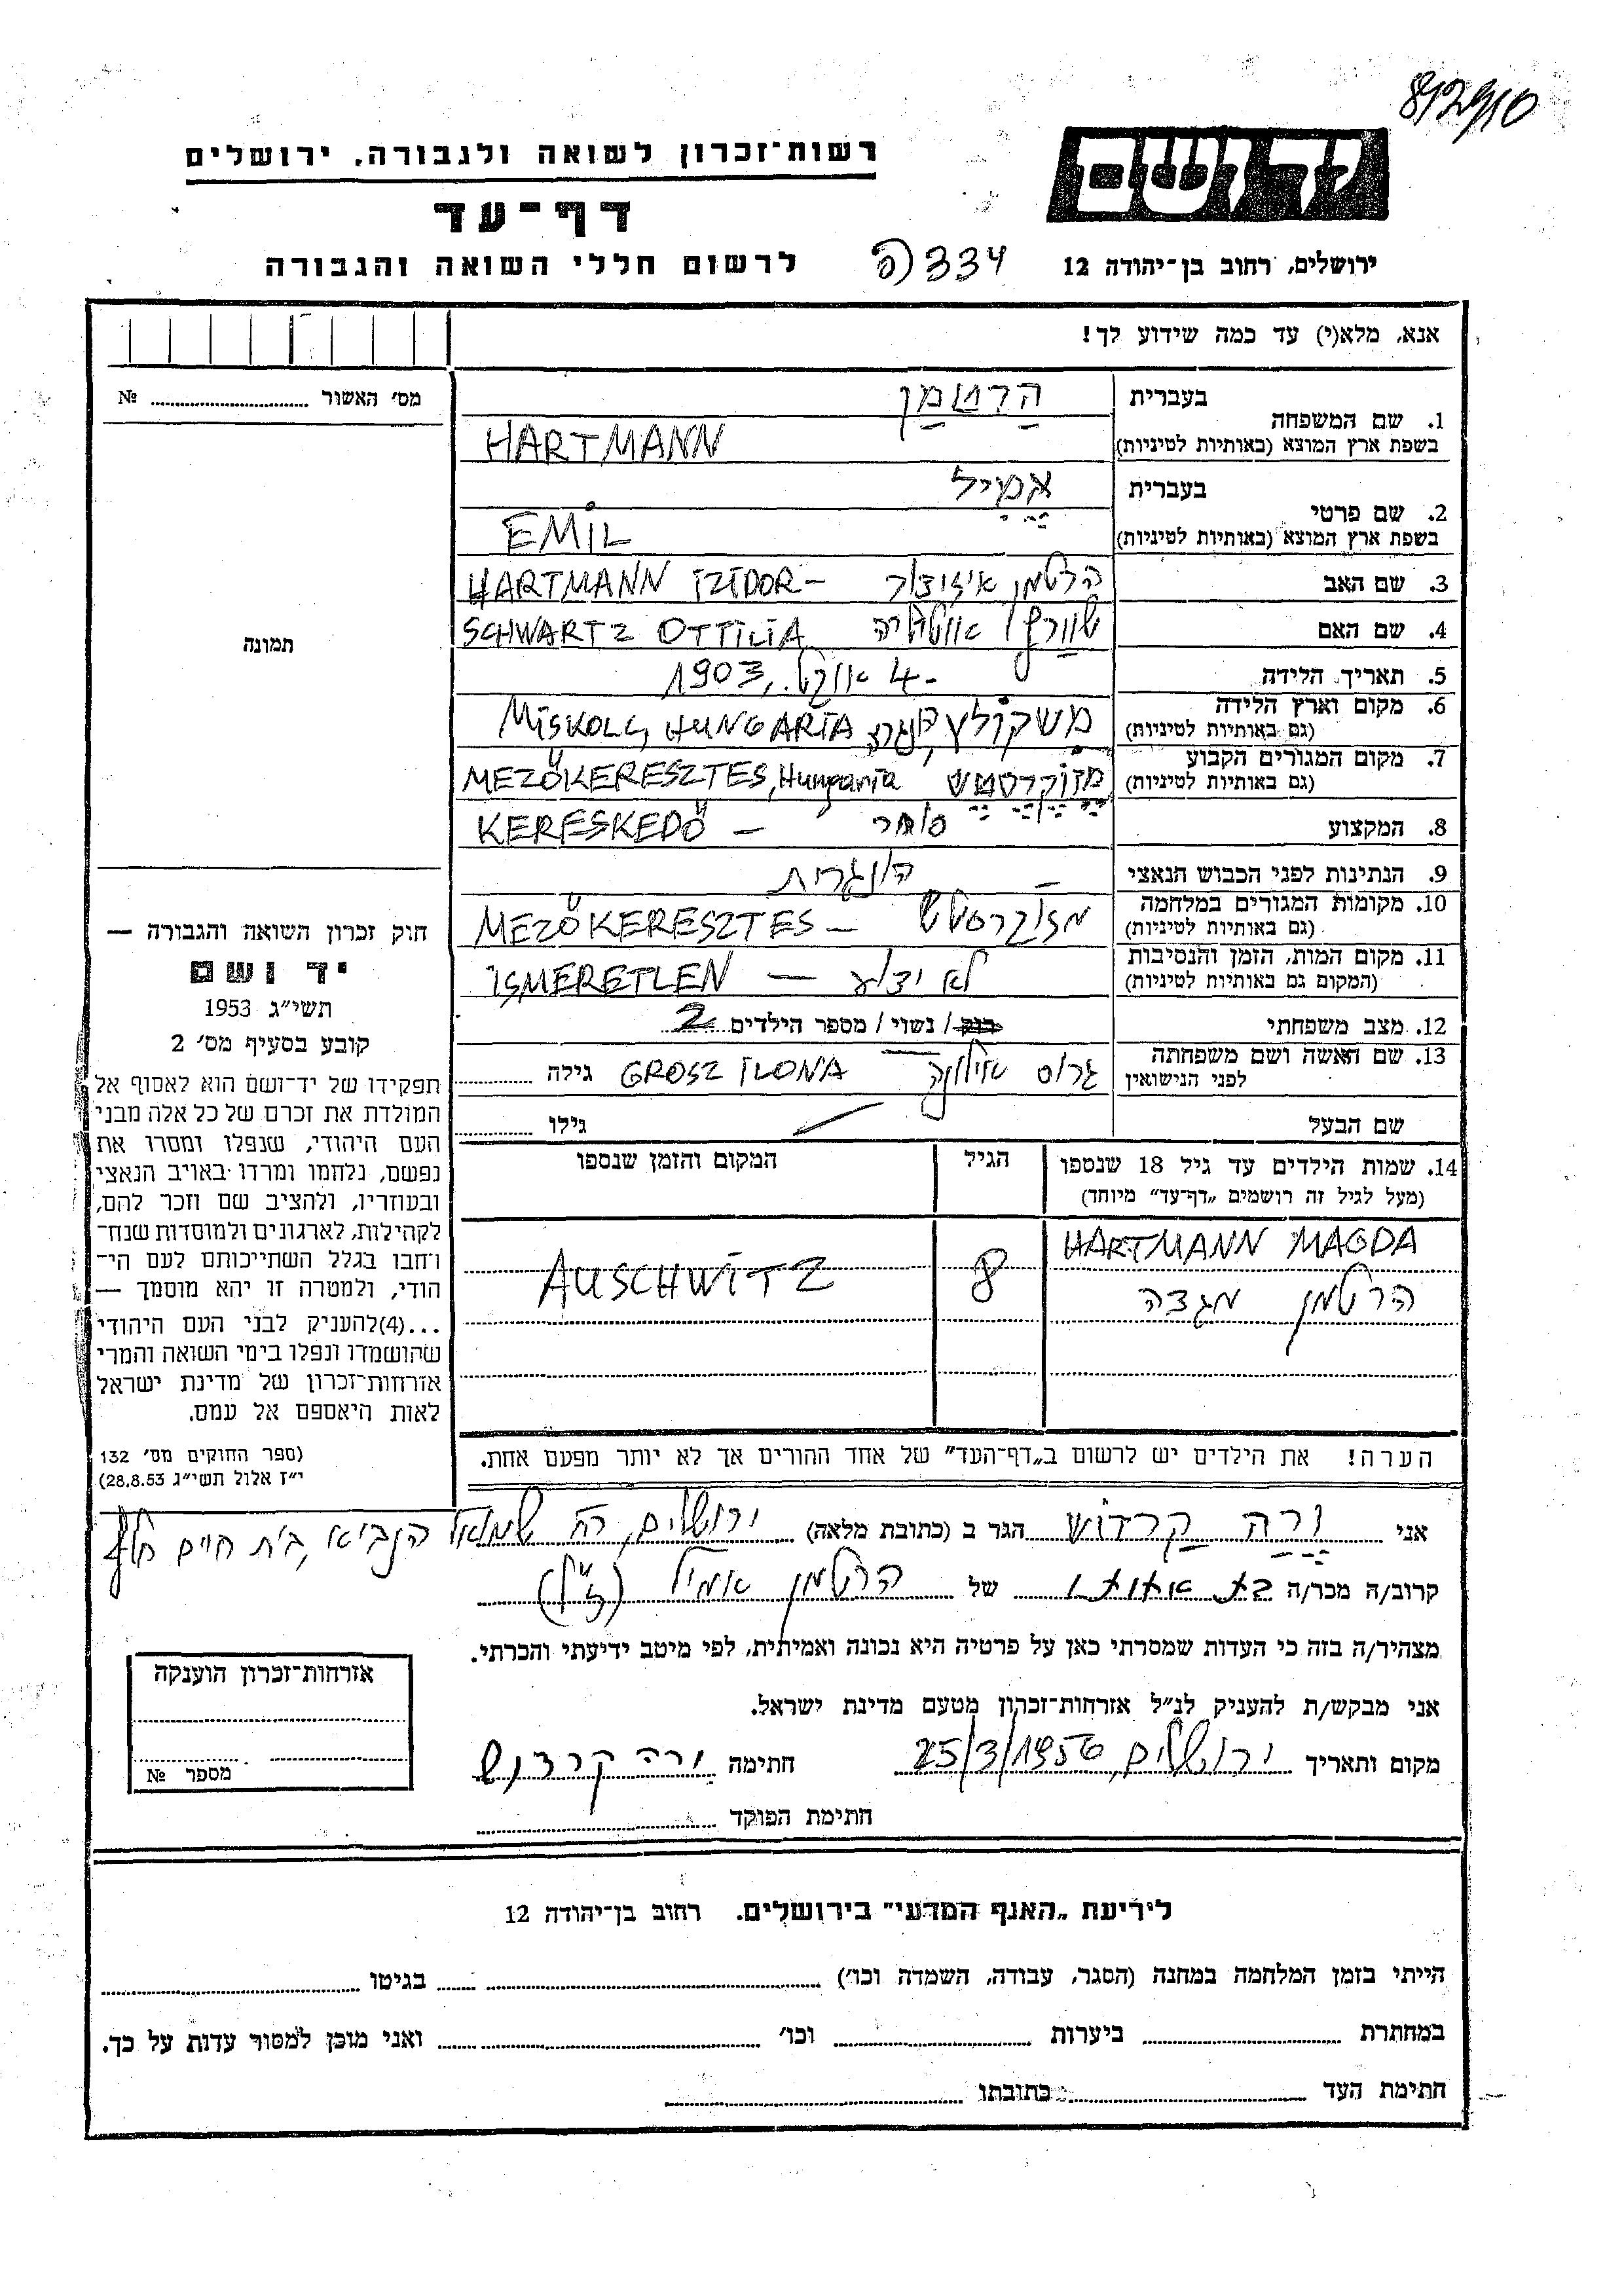 812910
רשות-זכרון לשואה ולגבורה, ירושלים
יד ושם
דף-עד
לרשום חללי השואה והגבורה
334
ירושלים, רחוב בן-יהודה 12
אנא, מלא(י) עד כמה שידוע לך!
מס׳ האשור № 
תמונה
1. שם המשפחה
בעברית הַרְטמַן
בשפת ארץ המוצא (באותיות לטיניות) HARTMANN
2. שם פרטי
בעברית אמיל
בשפת ארץ המוצא (באותיות לטיניות) EMIL
3. שם האב הרטמן איזידור – HARTMANN IZIDOR
4. שם האם שוורץ אוטיליה SCHWARTZ OTTILIA
5. תאריך הלידה 4 1903
6. מקום וארץ הלידה
(גם באותיות לטיניות) משקולץ MISKOLC, HUNGARIA
7. מקום המגורים הקבוע
(גם באותיות לטיניות) מזוקרסטש MEZŐKERESZTES, Hungaria
8. המקצוע סוחר – KERESKEDŐ
9. הנתינות לפני הכבוש הנאצי – הונגרית
10. מקומות המגורים במלחמה
(גם באותיות לטיניות) MEZŐKERESZTES –
11. מקום המות, הזמן והנסיבות
(המקום גם באותיות לטיניות) לא ידוע – ISMERETLEN
12. מצב משפחתי רוק / נשוי / מספר הילדים 2
13. שם האשה ושם משפחתה
לפני הנישואין גרוס אילונה GROSZ ILONA גילה
שם הבעל גילו
14. שמות הילדים עד גיל 18 שנספו
(מעל לגיל זה רושמים „דף-עד” מיוחד)
הגיל
המקום והזמן שנספו
HARTMANN MAGDA
הרטמן מגדה
8
AUSCHWITZ
הערה! את הילדים יש לרשום ב„דף-העד” של אחד ההורים אך לא יותר מפעם אחת.
חוק זכרון השואה והגבורה —
יד ושם
תשי״ג 1953
קובע בסעיף מס׳ 2
תפקידו של יד-ושם הוא לאסוף אל
המולדת את זכרם של כל אלה מבני
העם היהודי, שנפלו ומסרו את
נפשם, נלחמו ומרדו באויב הנאצי
ובעוזריו, ולהציב שם וזכר להם,
לקהילות, לארגונים ולמוסדות שנח-
רבו בגלל השתייכותם לעם הי-
הודי, ולמטרה זו יהא מוסמך —
...(4) להעניק לבני העם היהודי
שהושמדו ונפלו בימי השואה והמרי
אזרחות-זכרון של מדינת ישראל
לאות היאספם אל עמם.
(ספר החוקים מס׳ 132
י״ז אלול תשי״ג 28.8.53)
אני ורה קרדוש הגר ב (כתובת מלאה) ירושלים, רח שמואל הנביא, בית חיים
קרוב/ה מכר/ה בת אחותו של הרטמן אמיל (ז״ל)
מצהיר/ה בזה כי העדות שמסרתי כאן על פרטיה היא נכונה ואמיתית, לפי מיטב ידיעתי והכרתי.
אני מבקש/ת להעניק לנ״ל אזרחות-זכרון מטעם מדינת ישראל.
מקום ותאריך ירושלים, 25/3/1956 חתימה ורה קרדוש
חתימת הפוקד
אזרחות-זכרון הוענקה
מספר №
לידיעת „האגף המדעי” בירושלים. רחוב בן-יהודה 12
הייתי בזמן המלחמה במחנה (הסגר, עבודה, השמדה וכו׳) בגיטו
במחתרת ביערות וכו׳ ואני מוכן למסור עדות על כך.
חתימת העד כתובתו